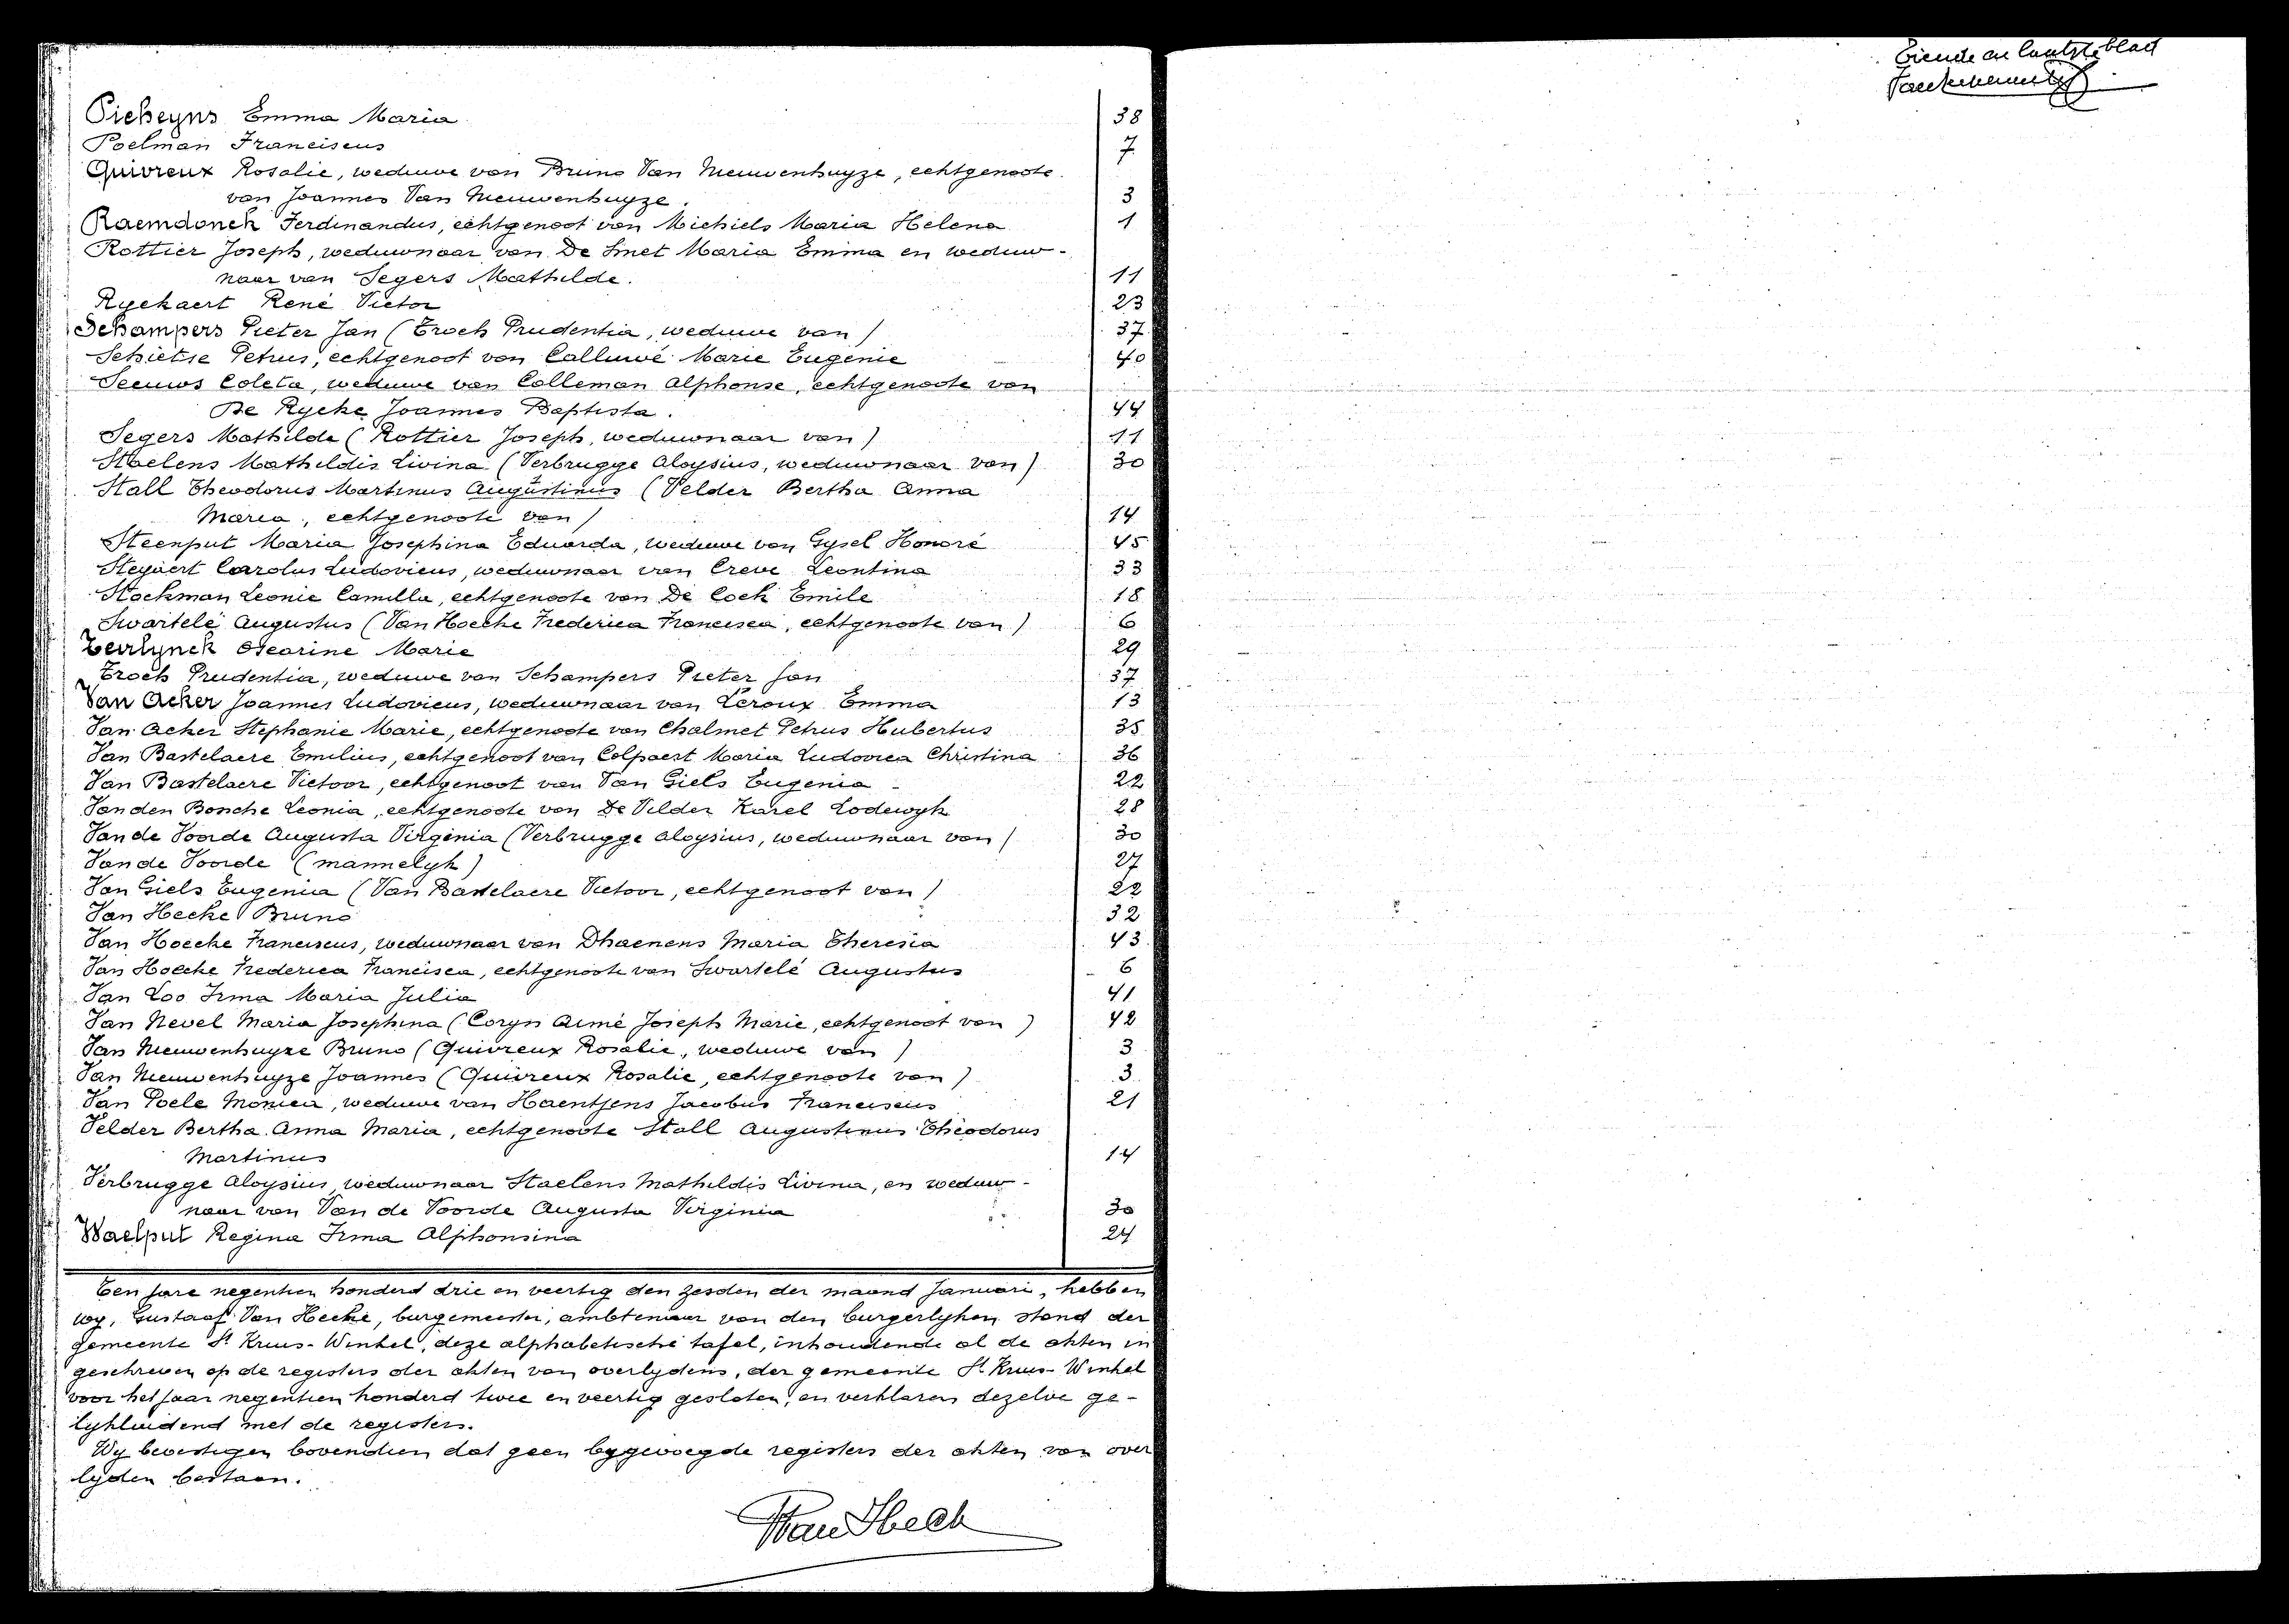 Pickeyns Emma Maria 38
Poelman Franciscus 7
Quivreux Rosalie, weduwe van Bruno Van Nieuwenhuyze, echtgenoote
van Joannes Van Nieuwenhuyze. 3
Raemdonck Ferdinandus, echtgenoot van Michiels Maria Helena 1
Rottier Joseph, weduwnaar van De Smet Maria Emma en weduw-
naar van Segers Mathilde. 11
Ryckaert René Victor 23
Schampers Pieter Jan (Troch Prudentia, weduwe van) 37
Schietse Petrus, echtgenoot van Calluwé Marie Eugenie 40
Seeuws Coleta, weduwe van Colleman Alphonse, echtgenoote van
De Rycke Joannes Baptista. 44
Segers Mathilde (Rottier Joseph, weduwnaar van) 11
Staelens Mathildis Livina (Verbrugge Aloysius, weduwnaar van) 30
Stall Theodorus Martinus Augustinus (Velder Bertha Anna
Maria, echtgenoote van) 14
Steenput Maria Josephina Eduarda, weduwe van Gysel Honoré 45
Steyaert Carolus Ludovicus, weduwnaar van Creve Leontina 33
Stockman Leonie Camilla, echtgenoote van De Cock Emile 18
Swartelé Augustus (Van Hoecke Frederica Francisca, echtgenoote van) 6
Teirlynck Oscarine Marie 29
Troch Prudentia, weduwe van Schampers Pieter Jan 37
Van Acker Joannes Ludovicus, weduwnaar van Leroux Emma 13
Van Acker Stephanie Marie, echtgenoote van Chalmet Petrus Hubertus 35
Van Bastelaere Emilius, echtgenoot van Colpaert Maria Ludovica Christina 36
Van Bastelaere Victoor, echtgenoot van Van Giels Eugenia 22
Van den Bosche Leonia, echtgenoote van De Vilder Karel Lodewyk 28
Van de Voorde Augusta Virginia (Verbrugge Aloysius, weduwnaar van) 30
Van de Voorde (mannelyk) 27
Van Giels Eugenia (Van Bastelaere Victoor, echtgenoot van) 22
Van Hecke Bruno 32
Van Hoecke Franciscus, weduwnaar van Dhaenens Maria Theresia 43
Van Hoecke Frederica Francisca, echtgenoote van Swartelé Augustus 6
Van Loo Irma Maria Julia 41
Van Nevel Maria Josephina (Coryn Aimé Joseph Marie, echtgenoot van) 42
Van Nieuwenhuyze Bruno (Quivreux Rosalie, weduwe van) 3
Van Nieuwenhuyze Joannes (Quivreux Rosalie, echtgenoote van) 3
Van Poele Monica, weduwe van Haentjens Jacobus Franciscus 21
Velder Bertha Anna Maria, echtgenoote Stall Augustinus Theodorus
Martinus 14
Verbrugge Aloysius, weduwnaar Staelens Mathildis Livina, en weduw-
naar van Van de Voorde Augusta Virginia 30
Waelput Regina Irma Alphonsina 24
Ten jare negentien honderd drie en veertig den zesden der maand Januari, hebben
wy, Gustaaf Van Hecke, burgemeester, ambtenaar van den burgerlyken stand der
gemeente St Kruis-Winkel, deze alphabetische tafel, inhoudende al de akten in
geschreven op de registers der akten van overlydens, der gemeente St Kruis-Winkel
voor het jaar negentien honderd twee en veertig gesloten, en verklaren dezelve ge-
lykluidend met de registers.
Wy bevestigen bovendien dat geen bygevoegde registers der akten van over
lyden bestaan.
Tiende en laatste blad